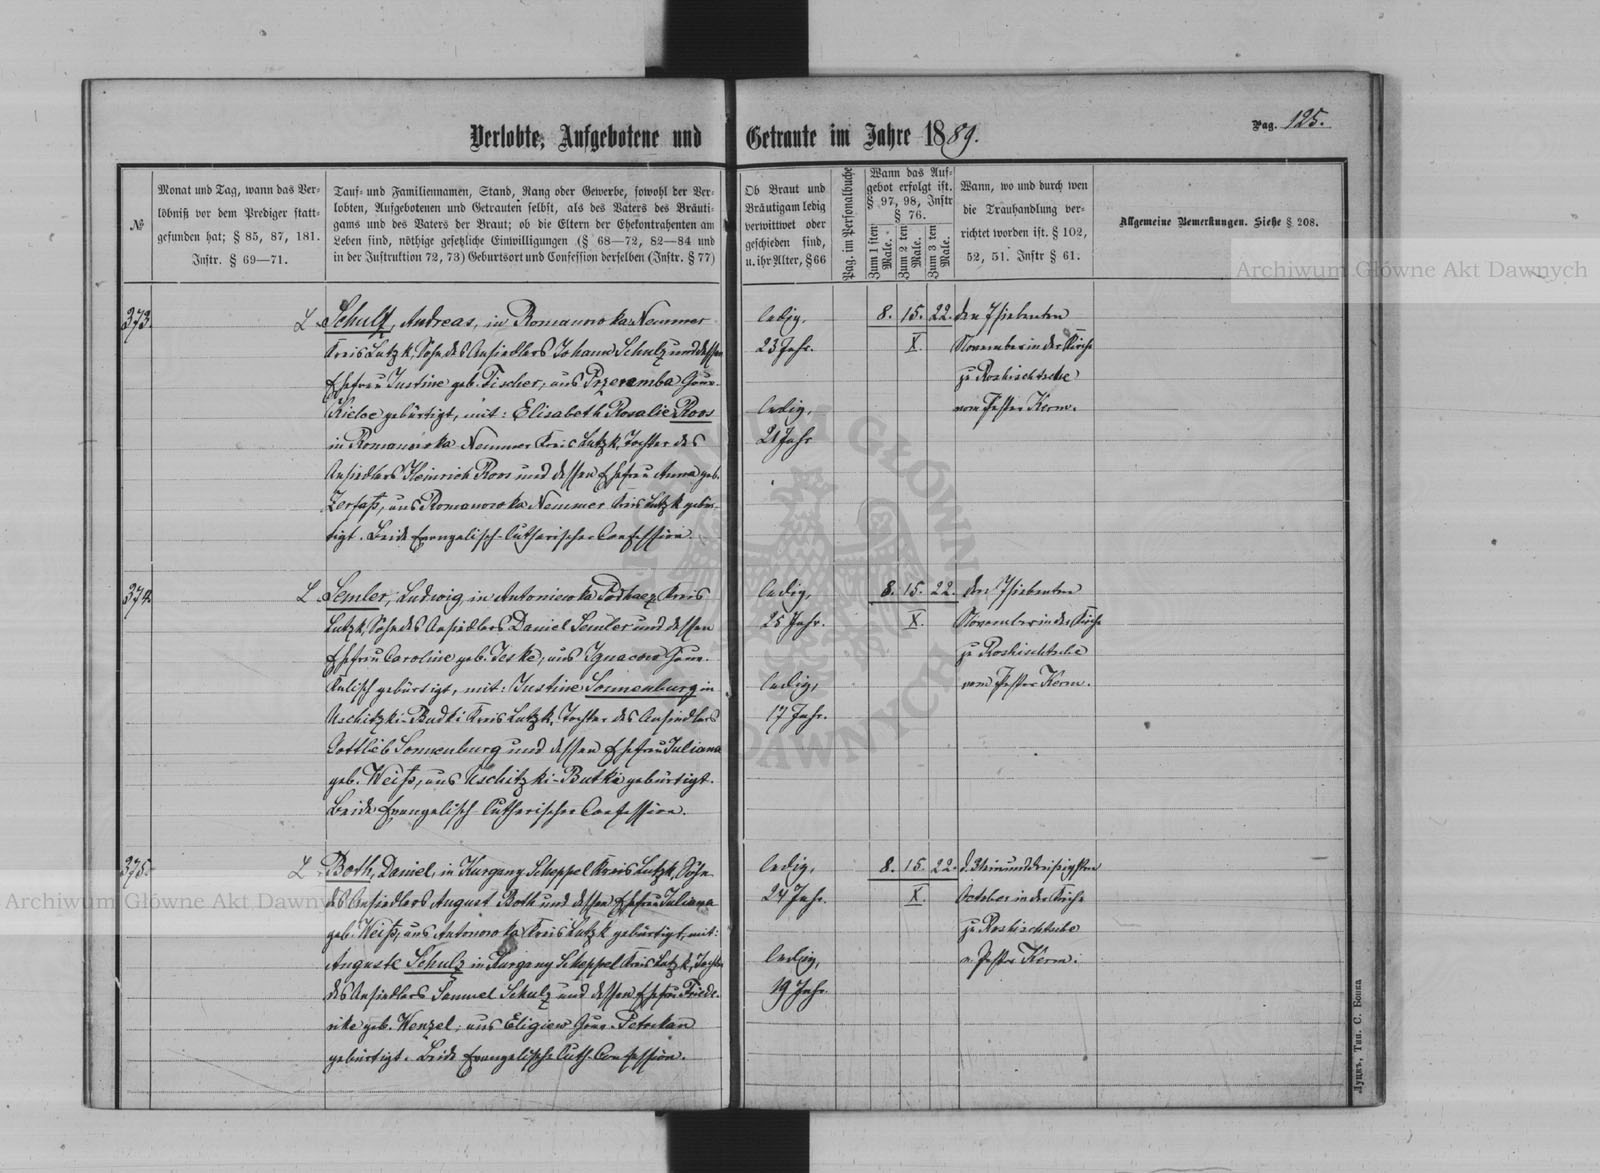 Verlobte, Aufgebotene und Getraute im Jahre 1889.
Pag. 125.
№
Monat und Tag, wann das Ver-
löbniß vor dem Prediger statt-
gefunden hat; § 85, 87, 181.
Instr. § 69—71.
Tauf- und Familiennamen, Stand, Rang oder Gewerbe, sowohl der Ver-
lobten, Aufgebotenen und Getrauten selbst, als des Vaters des Bräuti-
gams und des Vaters der Braut; ob die Eltern der Ehekontrahenten am
Leben sind, nöthige gesetzliche Einwilligungen (§ 68—72, 82—84 und
in der Instruktion 72, 73) Geburtsort und Confession derselben (Instr. § 77)
Ob Braut und
Bräutigam ledig
verwittwet oder
geschieden sind,
u. ihr Alter, § 66
Pag. im Personalbuche
Wann das Auf-
gebot erfolgt ist.
§ 97, 98, Instr
§ 76.
Zum 1 sten Male.
Zum 2 ten Male.
Zum 3 ten Male.
Wann, wo und durch wen
die Trauhandlung ver-
richtet worden ist. § 102,
52, 51. Instr § 61.
Allgemeine Bemerkungen. Siehe § 208.
373.
L. Schulz, Andreas, in Romanowka Nemmer
Kreis Lutzk, Sohn des Ansiedlers Johann Schulz und dessen
Ehefrau Justine geb. Fischer, aus Przeremba Gouv.
Kielce gebürtigt, mit: Elisabeth Rosalie Roos
in Romanowka Nemmer Kreis Lutzk, Tochter des
Ansiedlers Heinrich Roos und dessen Ehefrau Anna geb.
Zerfaß, aus Romanowka Nemmer Kreis Lutzk gebür-
tigt. Beide Evangelisch-Lutherischer Confession.
ledig,
23 Jahr.
ledig,
21 Jahr
8. 15. 22.
X.
den 7 siebenten
November in der Kirche
zu Roshischtsche
vom Pastor Kerm.
374.
L. Semler, Ludwig, in Antoniewka Podhaez, Kreis
Lutzk, Sohn des Ansiedlers Daniel Semler und dessen
Ehefrau Caroline geb. Jeske, aus Ignacow Gouv.
Kalisch gebürtigt, mit: Justine Sonnenburg in
Uschitzki-Budki Kreis Lutzk, Tochter des Ansiedlers
Gottlieb Sonnenburg und dessen Ehefrau Juliana
geb. Weiß, aus Uschitzki-Butki gebürtigt.
Beide Evangelisch-Lutherischer Confession.
ledig,
25 Jahr.
ledig,
17 Jahr.
8. 15. 22.
X.
den 7 siebenten
November in der Kirche
zu Roshischtsche
vom Pastor Kerm.
375.
L. Both, Daniel, in Kurgany Scheppel Kreis Lutzk, Sohn
des Ansiedlers August Both und dessen Ehefrau Juliana
geb. Weiß, aus Antonowka Kreis Lutzk gebürtigt, mit:
Auguste Schulz in Kurgany Scheppel Kreis Lutzk, Tochter
des Ansiedlers Samuel Schulz und dessen Ehefrau Friede-
rike geb. Wenzel, aus Eligiew Gouv. Petrokau
gebürtigt. Beide Evangelisch-Luth. Confession.
ledig,
24 Jahr.
ledig,
19 Jahr.
8. 15. 22.
X.
d. 31 einunddreißigsten
October in der Kirche
zu Roshischtsche
v. Pastor Kerm.
Луцкъ, Тип. С. Бонка
Archiwum Główne Akt Dawnych
Archiwum Główne Akt Dawnych